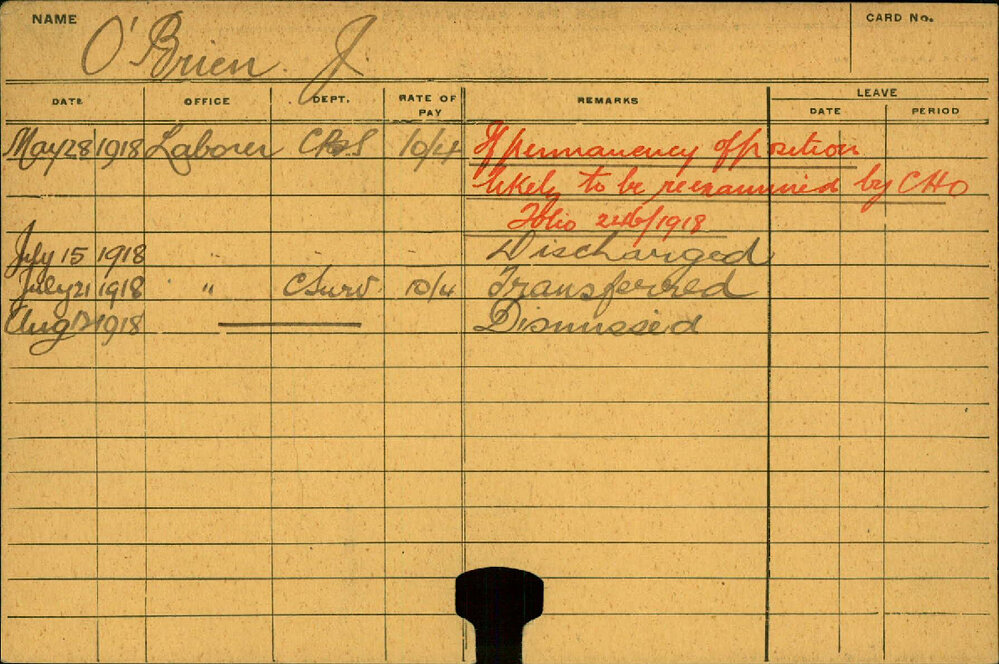 NAME O'Brien. J. CARD No.
DATE OFFICE DEPT. RATE OF PAY REMARKS LEAVE
DATE PERIOD
May 28 1918 Laborer 10/4 If permanency of position
likely to be reexamined by CHO
Folio 246/1918
July 15 1918 " Discharged
July 21 1918 " C Surv. 10/4 Transferred
Aug 1918 Dismissed